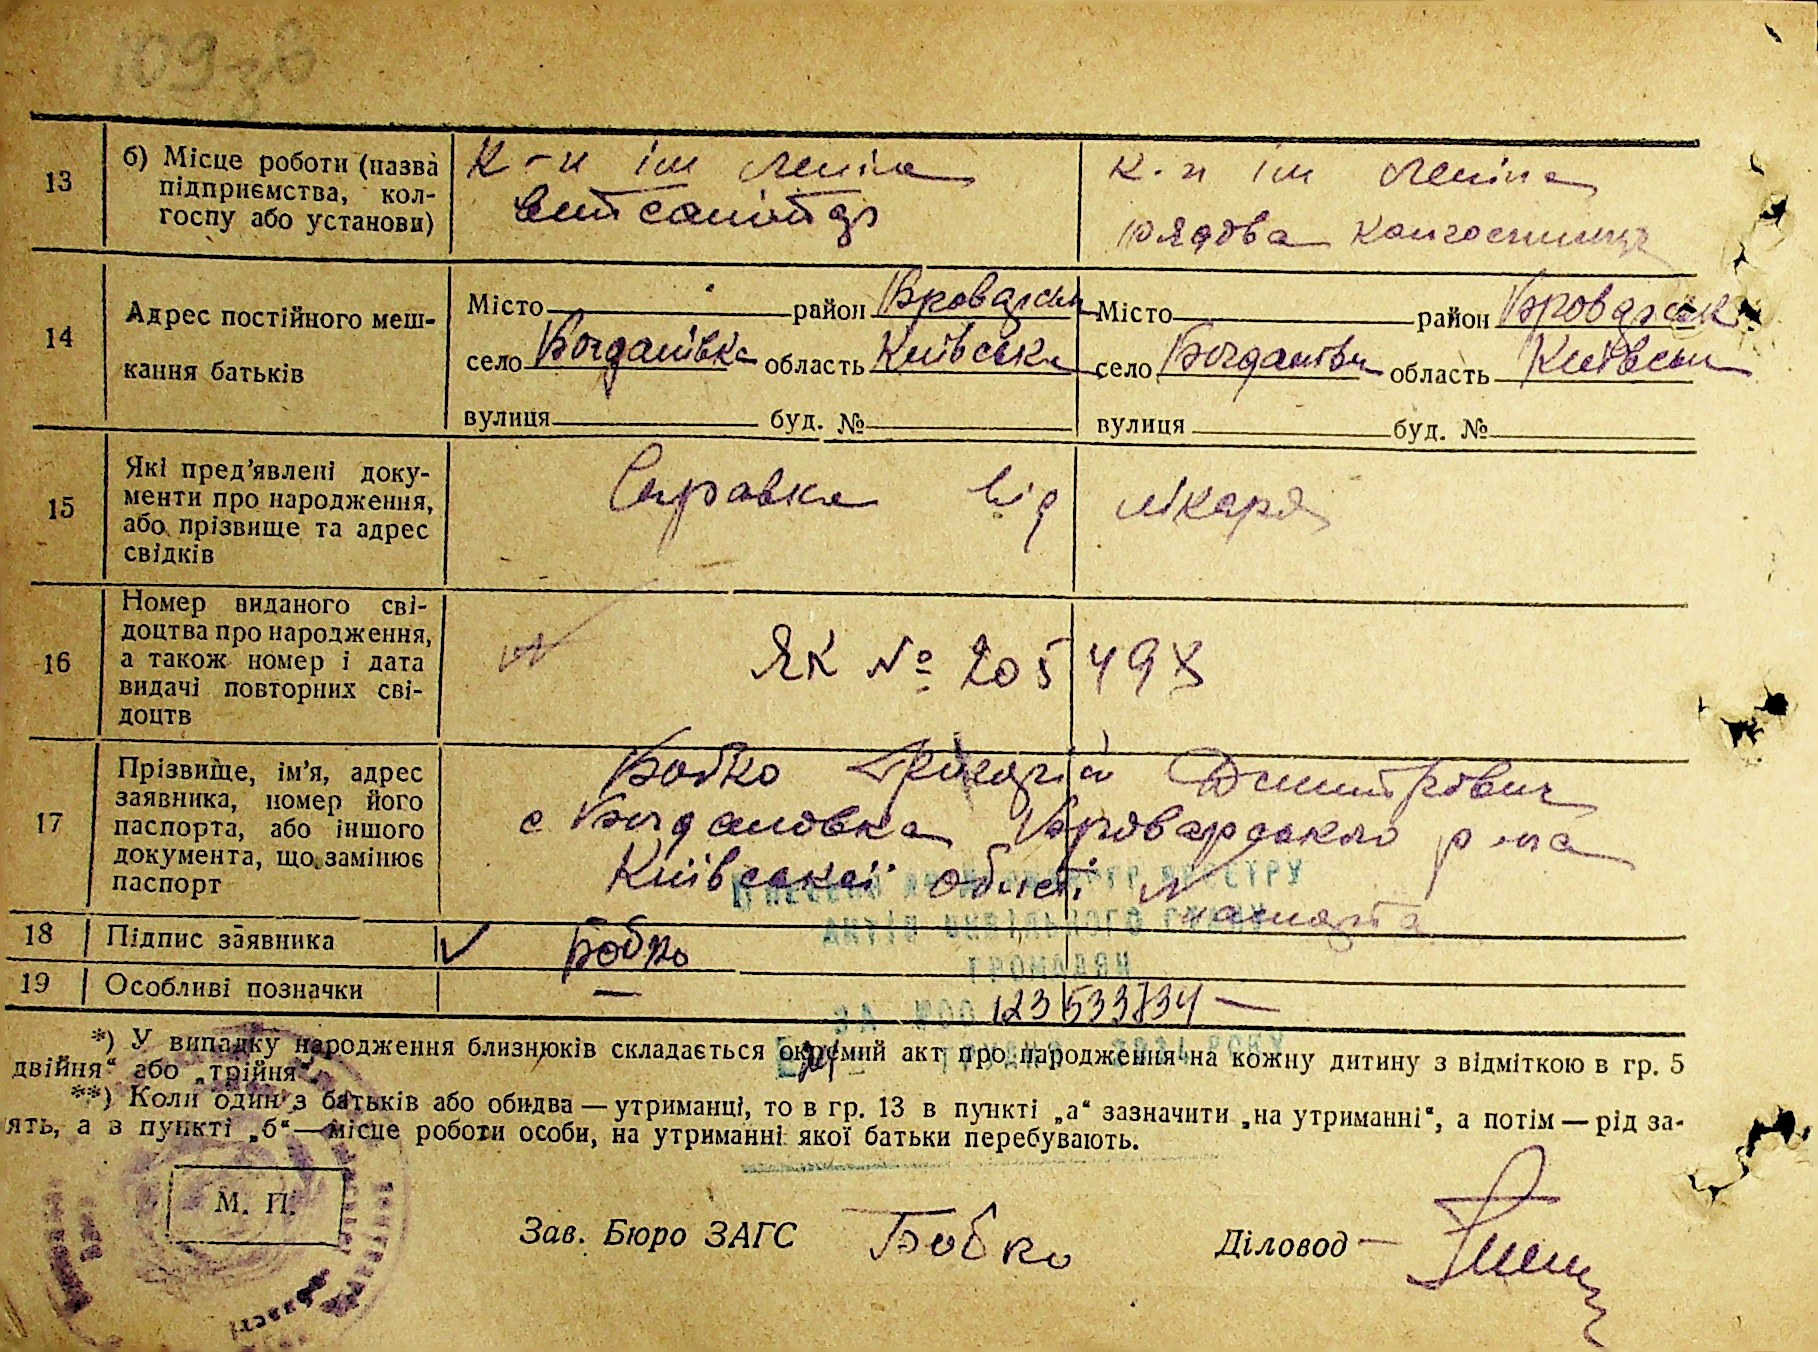 109 зв
13
б) Місце роботи (назва
підприємства, кол-
госпу або установи)
К-п ім Леніна
ветсанітар
к.-п ім Леніна
рядова колгоспниця
14
Адрес постійного меш-
кання батьків
Місто район Броварськ
село Богданівка область Київська
вулиця буд. №
Місто район Броварськ
село Богданівк область Київськ
вулиця буд. №
15
Які пред’явлені доку-
менти про народження,
або прізвище та адрес
свідків
Справка від лікаря
16
Номер виданого сві-
доцтва про народження,
а також номер і дата
видачі повторних сві-
доцтв
ЯК № 205498
17
Прізвище, ім’я, адрес
заявника, номер його
паспорта, або іншого
документа, що замінює
паспорт
Бобко Дмитрович
с Богдановка Броварського р-на
Київської області
паспорта
18 Підпис заявника
Бобко
19 Особливі позначки
—
РЕЄСТРУ
АКТІВ ЦИВІЛЬНОГО СТАНУ
ГРОМАДЯН
ЗА №00 123533734 —
*) У випадку народження близнюків складається окремий акт про народження на кожну дитину з відміткою в гр. 5
двійня“ або „трійня“.
**) Коли один з батьків або обидва — утриманці, то в гр. 13 в пункті „а“ зазначити „на утриманні“, а потім — рід за-
ять, а в пункті „б“—місце роботи особи, на утриманні якої батьки перебувають.
М. П.
Зав. Бюро ЗАГС Бобко Діловод —